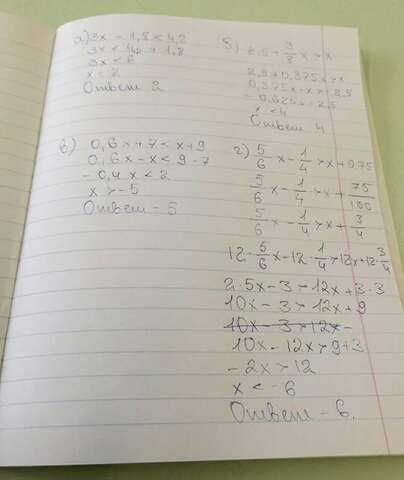 а) 3x - 1,8 < 4,2
3x < 4,2 + 1,8
3x < 6
x = 2
Ответ 2
б) 2,5 + 3/8 x > x
2,5 + 0,375x > x
0,375x - x > - 2,5
- 0,625x > - 2,5
x < 4
Ответ 4
в) 0,6x + 7 < x + 9
0,6x - x < 9 - 7
- 0,4x < 2
x > - 5
Ответ - 5
г) 5/6 x - 1/4 > x + 0,75
5/6 x - 1/4 > x + 75/100
5/6 x - 1/4 > x + 3/4
12 · 5/6 x - 12 · 1/4 > 12x + 12 · 3/4
2 · 5x - 3 > 12x + 3 · 3
10x - 3 > 12x + 9
10x - 3 > 12x -
10x - 12x > 9 + 3
- 2x > 12
x < - 6
Ответ - 6.